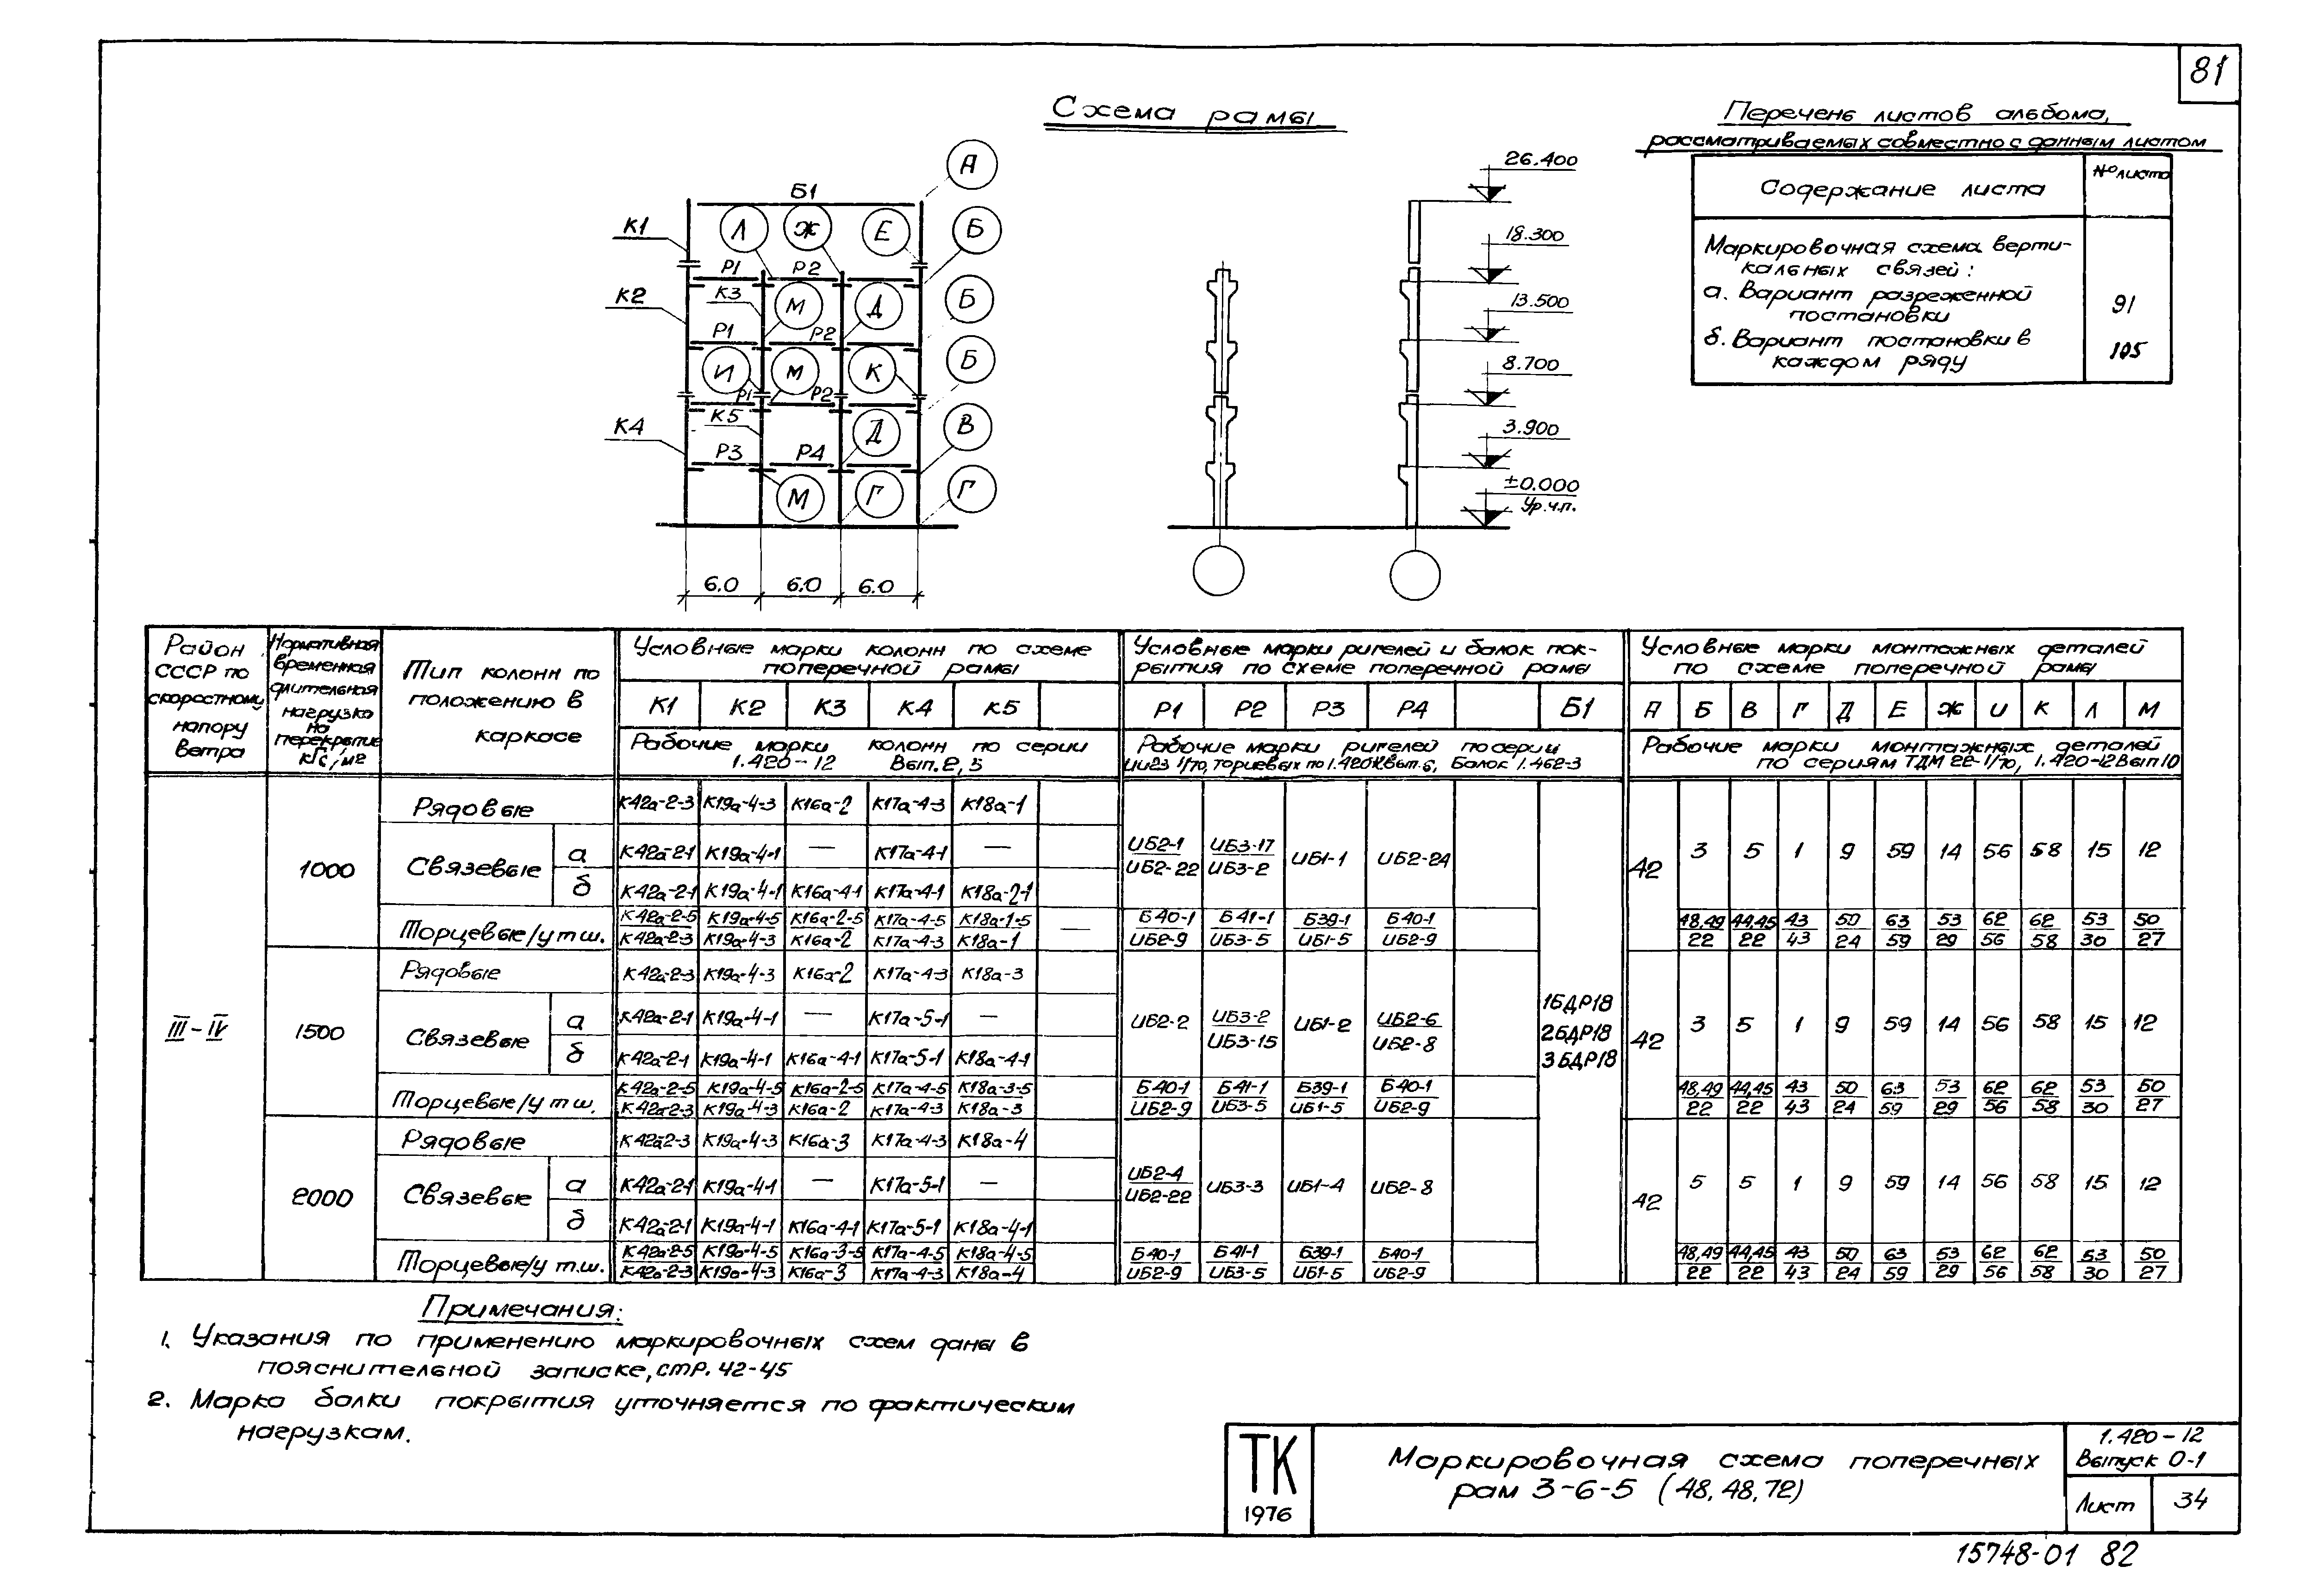 81
Схема рамы
Перечень листов альбома,
рассматриваемых совместно с данным листом
Содержание листа
№ листа
Маркировочная схема верти-
кальных связей:
а. Вариант разреженной
постановки
91
б. Вариант постановки в
каждом ряду
105
Б1
А
К1
Л Ж Е Б
Р1 Р2
К3
К2
М Д Б
Р1 Р2
И М К Б
Р1 Р2
К5
К4
Д В
Р3 Р4
М Г Г
6.0 6.0 6.0
26.400
18.300
13.500
8.700
3.900
±0.000
Ур.ч.п.
Район
СССР по
скоростному
напору
ветра
Нормативная
временная
длительная
нагрузка
на
перекрытие
кгс/м2
Тип колонн по
положению в
каркасе
Условные марки колонн по схеме
поперечной рамы
К1 К2 К3 К4 К5
Рабочие марки колонн по серии
1.420-12 Вып.2,5
Условные марки ригелей и балок пок-
рытия по схеме поперечной рамы
Р1 Р2 Р3 Р4 Б1
Рабочие марки ригелей по серии
ИИ23 1/70, торцевых по 1.420-12 вып.6, балок 1.462-3
Условные марки монтажных деталей
по схеме поперечной рамы
А Б В Г Д Е Ж И К Л М
Рабочие марки монтажных деталей
по сериям ТДМ 22-1/70, 1.420-12 Вып 10
III-IV
1000
Рядовые К42а-2-3 К19а-4-3 К16а-2 К17а-4-3 К18а-1
Связевые а К42а-2-1 К19а-4-1 — К17а-4-1 —
б К42а-2-1 К19а-4-1 К16а-4-1 К17а-4-1 К18а-2-1
ИБ2-1 ИБ3-17
ИБ2-22 ИБ3-2 ИБ1-1 ИБ2-24
42 3 5 1 9 59 14 56 58 15 12
Торцевые/у т.ш. К42а-2-5 К19а-4-5 К16а-2-5 К17а-4-5 К18а-1-5 —
К42а-2-3 К19а-4-3 К16а-2 К17а-4-3 К18а-1
Б40-1 Б41-1 Б39-1 Б40-1
ИБ2-9 ИБ3-5 ИБ1-5 ИБ2-9
48,49 44,45 43 50 63 53 62 62 53 50
22 22 43 24 59 29 56 58 30 27
1500
Рядовые К42а-2-3 К19а-4-3 К16а-2 К17а-4-3 К18а-3
Связевые а К42а-2-1 К19а-4-1 — К17а-5-1 —
б К42а-2-1 К19а-4-1 К16а-4-1 К17а-5-1 К18а-4-1
ИБ2-2 ИБ3-2 ИБ1-2 ИБ2-6
ИБ3-15 ИБ2-8
1БДР18
2БДР18
3БДР18
42 3 5 1 9 59 14 56 58 15 12
Торцевые/у т.ш. К42а-2-5 К19а-4-5 К16а-2-5 К17а-4-5 К18а-3-5
К42а-2-3 К19а-4-3 К16а-2 К17а-4-3 К18а-3
Б40-1 Б41-1 Б39-1 Б40-1
ИБ2-9 ИБ3-5 ИБ1-5 ИБ2-9
48,49 44,45 43 50 63 53 62 62 53 50
22 22 43 24 59 29 56 58 30 27
2000
Рядовые К42а-2-3 К19а-4-3 К16а-3 К17а-4-3 К18а-4
Связевые а К42а-2-1 К19а-4-1 — К17а-5-1 —
б К42а-2-1 К19а-4-1 К16а-4-1 К17а-5-1 К18а-4-1
ИБ2-4
ИБ2-22 ИБ3-3 ИБ1-4 ИБ2-8
42 5 5 1 9 59 14 56 58 15 12
Торцевые/у т.ш. К42а-2-5 К19а-4-5 К16а-3-5 К17а-4-5 К18а-4-5
К42а-2-3 К19а-4-3 К16а-3 К17а-4-3 К18а-4
Б40-1 Б41-1 Б39-1 Б40-1
ИБ2-9 ИБ3-5 ИБ1-5 ИБ2-9
48,49 44,45 43 50 63 53 62 62 53 50
22 22 43 24 59 29 56 58 30 27
Примечания:
1. Указания по применению маркировочных схем даны в
пояснительной записке, стр. 42-45
2. Марка балки покрытия уточняется по фактическим
нагрузкам.
ТК
1976
Маркировочная схема поперечных
рам 3-6-5 (48,48,72)
1.420-12
Выпуск 0-1
Лист 34
15748-01 82